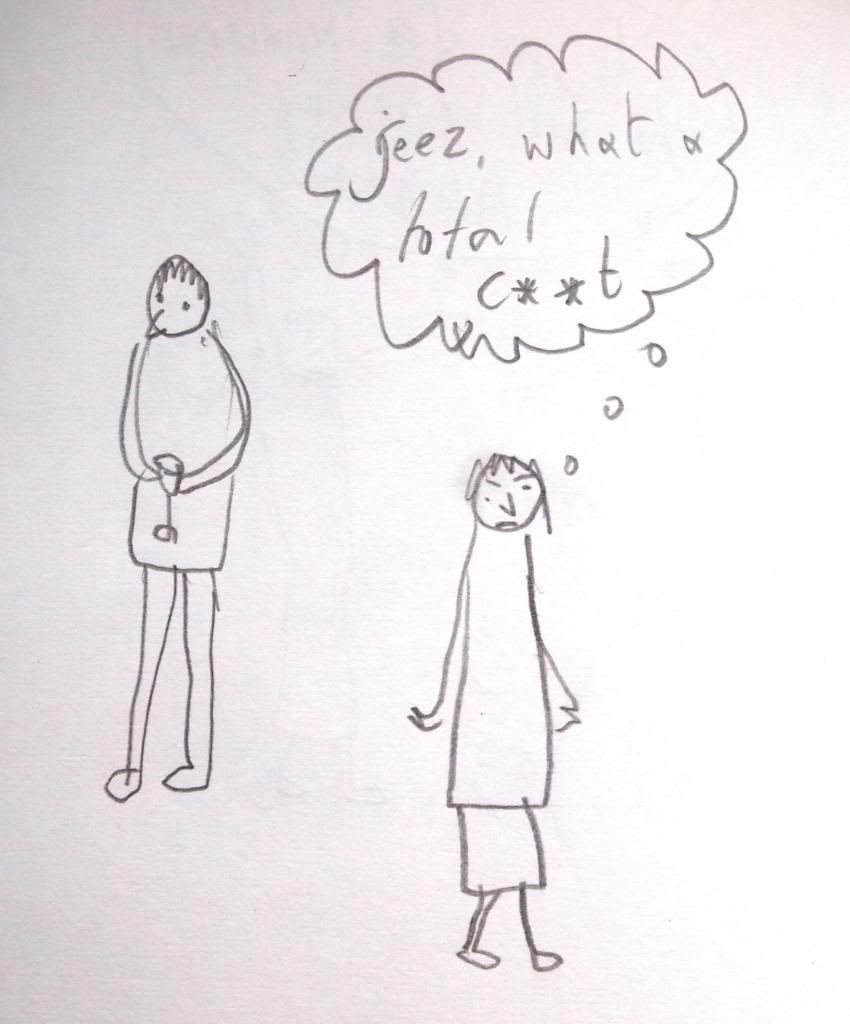 jeez, what a
total
c**t